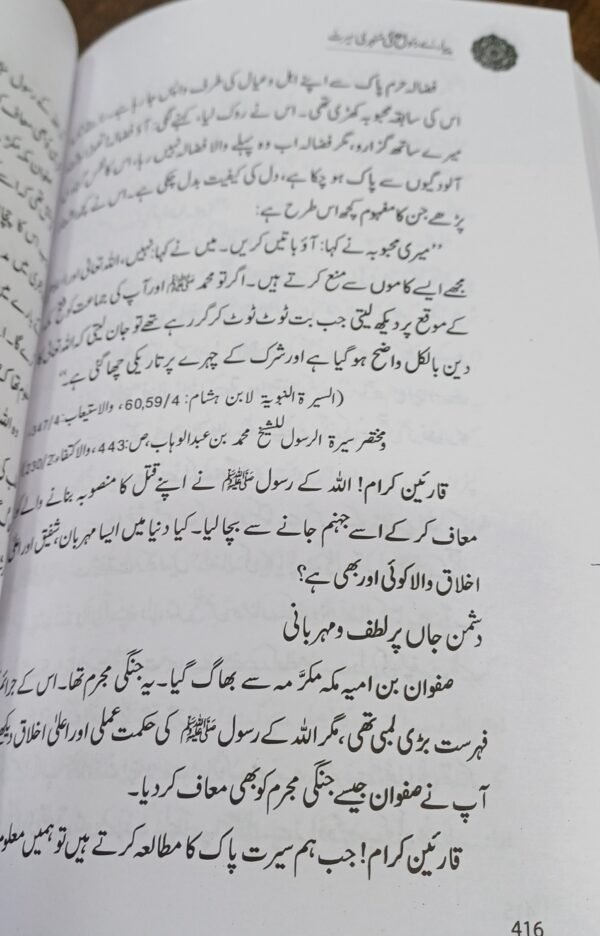 پیارے رسول ﷺ کی سنہری سیرت
فضالہ حرم پاک سے اپنے اہل و عیال کی طرف واپس جا رہا ہے۔
اس کی سابقہ محبوبہ کھڑی تھی۔ اس نے روک لیا۔ کہنے لگی: آؤ فضالہ
میرے ساتھ گزارو، مگر فضالہ اب وہ پہلے والا فضالہ نہیں رہا، اس کا نفس
آلودگیوں سے پاک ہو چکا ہے، دل کی کیفیت بدل چکی ہے۔ اس نے کچھ
پڑھے جن کا مفہوم کچھ اس طرح ہے:
’’میری محبوبہ نے کہا: آؤ باتیں کریں۔ میں نے کہا: نہیں، اللہ تعالیٰ اور
مجھے ایسے کاموں سے منع کرتے ہیں۔ اگر تو محمد ﷺ اور آپ کی جماعت کو فتح
کے موقع پر دیکھ لیتی جب بت ٹوٹ ٹوٹ کر گر رہے تھے تو جان لیتی کہ اللہ تعالیٰ کا
دین بالکل واضح ہو گیا ہے اور شرک کے چہرے پر تاریکی چھا گئی ہے۔‘‘
(السیرۃ النبویۃ لابن ہشام: 60,59/4، والاستیعاب: 347/4،
ومختصر سیرۃ الرسول للشیخ محمد بن عبدالوہاب، ص: 443، والاکتفاء: 230/2)
قارئین کرام! اللہ کے رسول ﷺ نے اپنے قتل کا منصوبہ بنانے والے کو
معاف کر کے اسے جہنم جانے سے بچا لیا۔ کیا دنیا میں ایسا مہربان، شفیق اور اعلیٰ
اخلاق والا کوئی اور بھی ہے؟
دشمن جاں پر لطف و مہربانی
صفوان بن امیہ مکہ مکرَّمہ سے بھاگ گیا۔ یہ جنگی مجرم تھا۔ اس کے جرائم
فہرست بڑی لمبی تھی، مگر اللہ کے رسول ﷺ کی حکمت عملی اور اعلیٰ اخلاق دیکھیے
آپ نے صفوان جیسے جنگی مجرم کو بھی معاف کر دیا۔
قارئین کرام! جب ہم سیرت پاک کا مطالعہ کرتے ہیں تو ہمیں معلوم
416